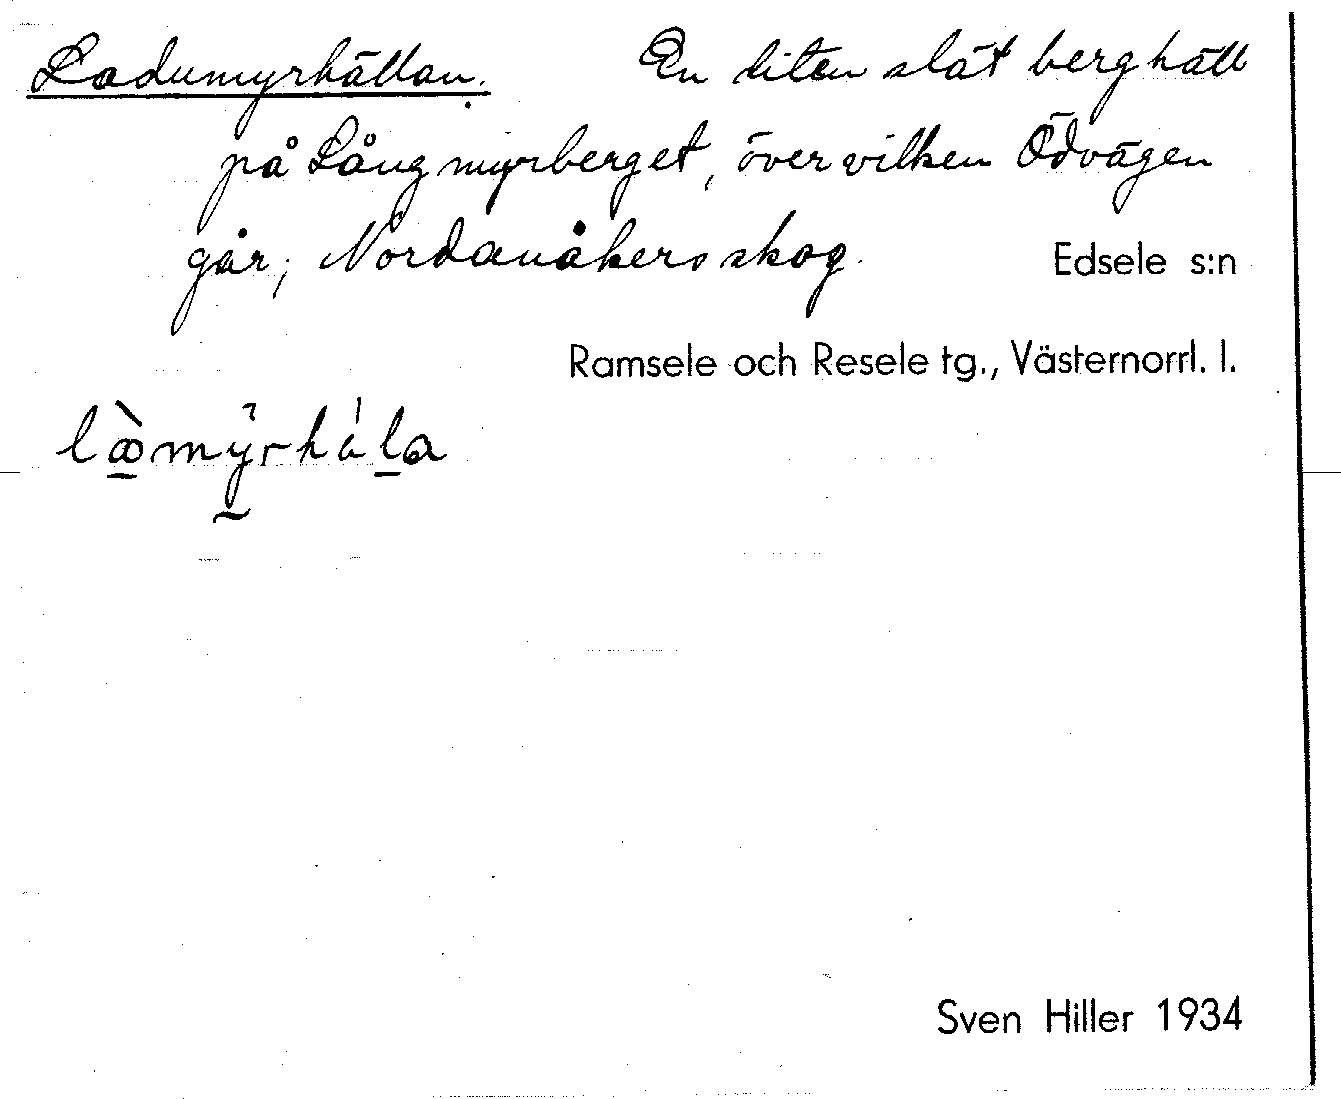 Ladumyrhällan. En liten slät berghäll
på Långmyrberget, över vilken Ödvägen
går; Nordanåkers skog. Edsele s:n
Ramsele och Resele tg., Västernorrl. l.
Sven Hiller 1934